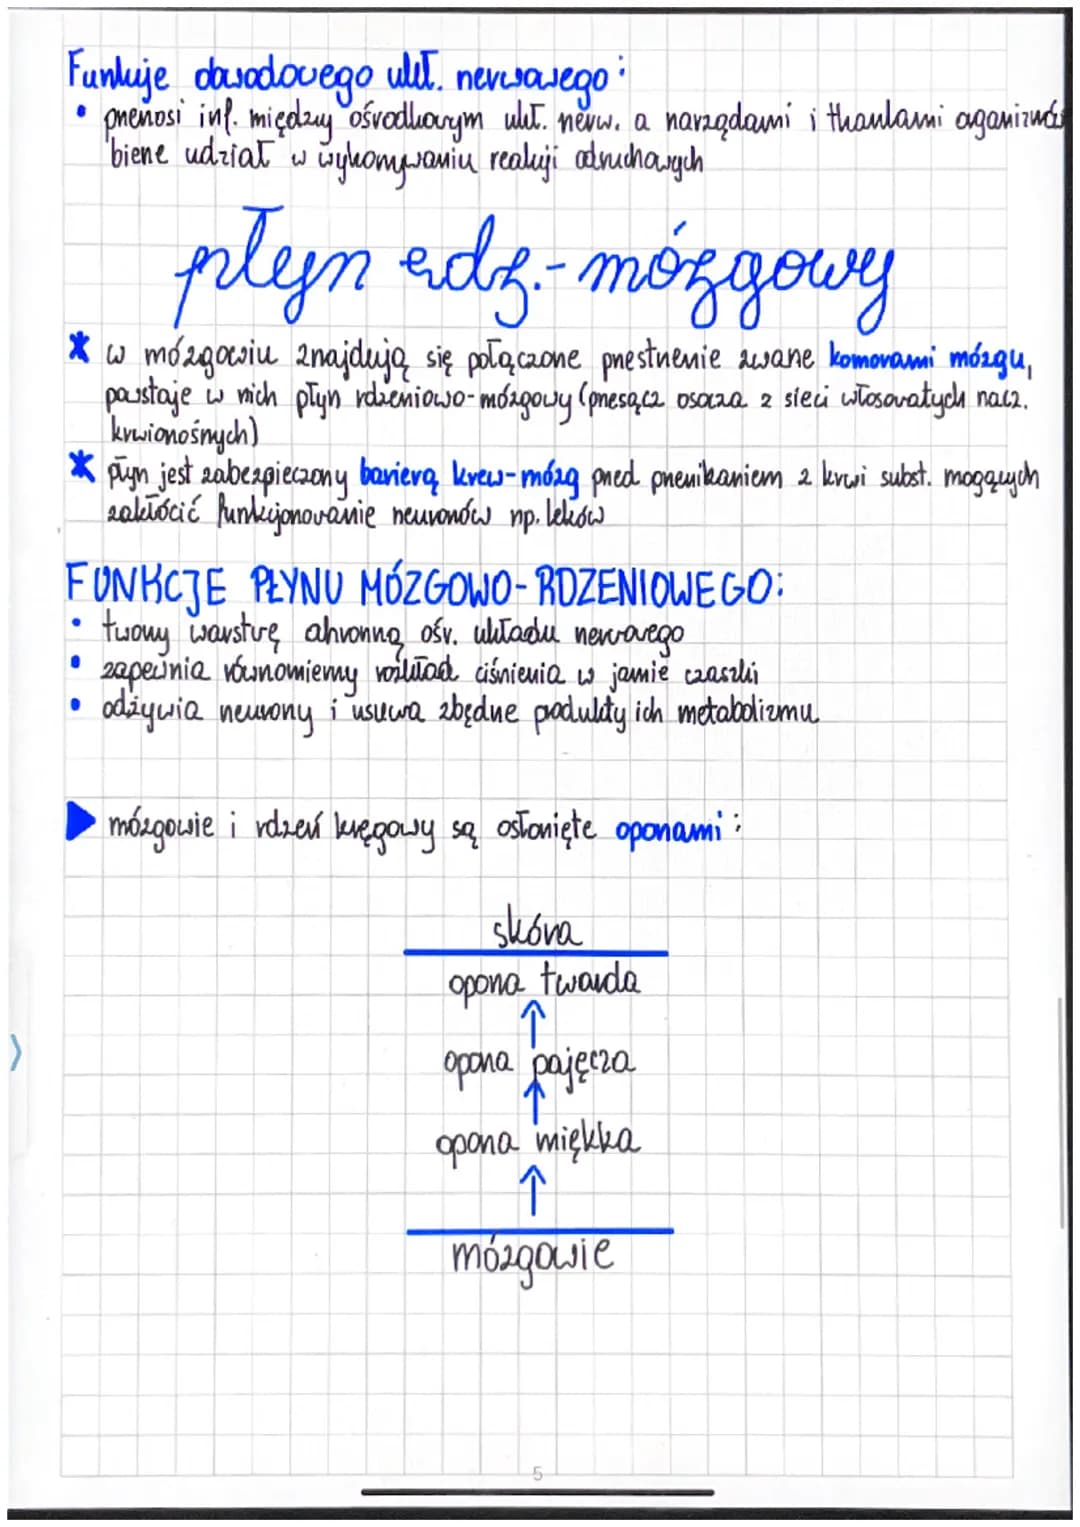 Funkcje obwodowego ukł. nerwowego:
• przenosi inf. między ośrodkowym ukł. nerw. a narządami i tkankami organizmu
bierze udział w wykonywaniu reakcji odruchowych
płyn rdz.-mózgowy
* w mózgowiu znajdują się połączone przestrzenie zwane komorami mózgu,
powstaje w nich płyn rdzeniowo-mózgowy (przesącz osocza z sieci włosowatych nacz.
krwionośnych)
* płyn jest zabezpieczony barierą krew-mózg przed przenikaniem z krwi subst. mogących
zakłócić funkcjonowanie neuronów np. leków
FUNKCJE PŁYNU MÓZGOWO-RDZENIOWEGO:
• tworzy warstwę ochronną ośr. układu nerwowego
• zapewnia równomierny rozkład ciśnienia w jamie czaszki
• odżywia neurony i usuwa zbędne produkty ich metabolizmu
▶ mózgowie i rdzeń kręgowy są osłonięte oponami:
skóra
opona twarda
↑
opona pajęcza
↑
opona miękka
↑
mózgowie
5